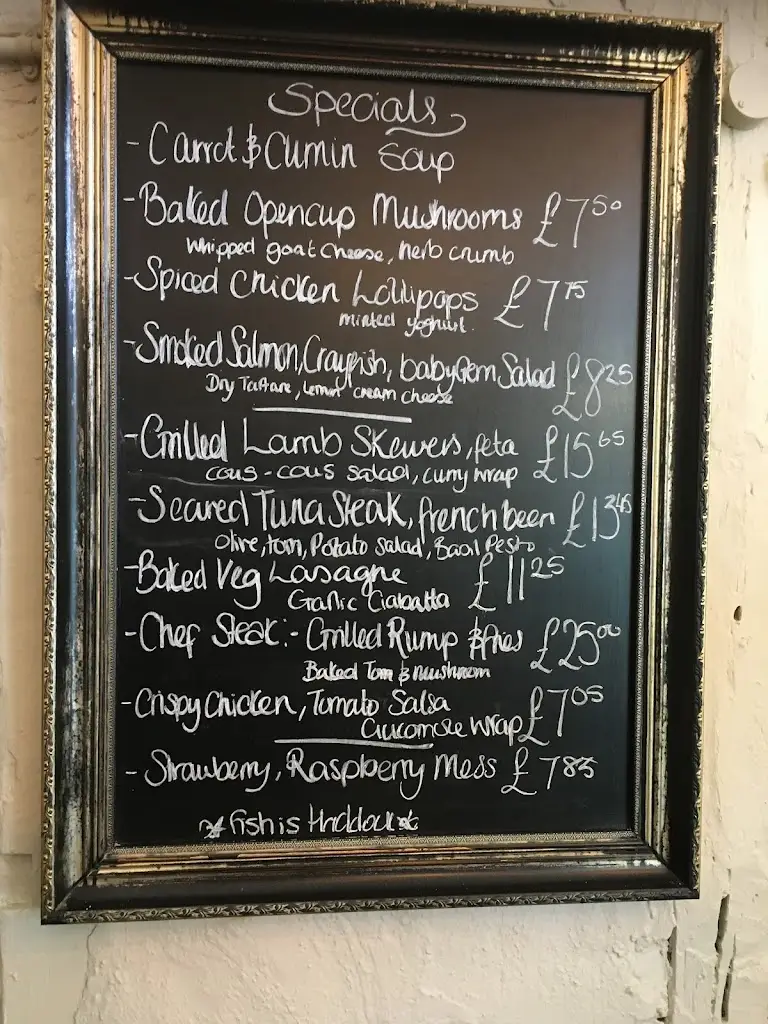 Specials
- Carrot & Cumin Soup
- Baked Opencup Mushrooms £7.50
Whipped goat cheese, herb crumb
- Spiced Chicken Lollipops £7.75
minted yoghurt.
- Smoked Salmon, Crayfish, baby Gem Salad £8.25
Dry Tartare, Lemon cream cheese
- Grilled Lamb Skewers, feta £15.65
cous-cous salad, curry wrap
- Seared Tuna Steak, french been £13.45
Olive, tom, Potato salad, Basil Pesto
- Baked Veg Lasagne £11.25
Garlic Ciabatta
- Chef Steak:- Grilled Rump & fries £25.00
Baked Tom & mushroom
- Crispy Chicken, Tomato Salsa
Guacomole Wrap £7.05
- Strawberry, Raspberry Mess £7.85
* Fish is Haddock *